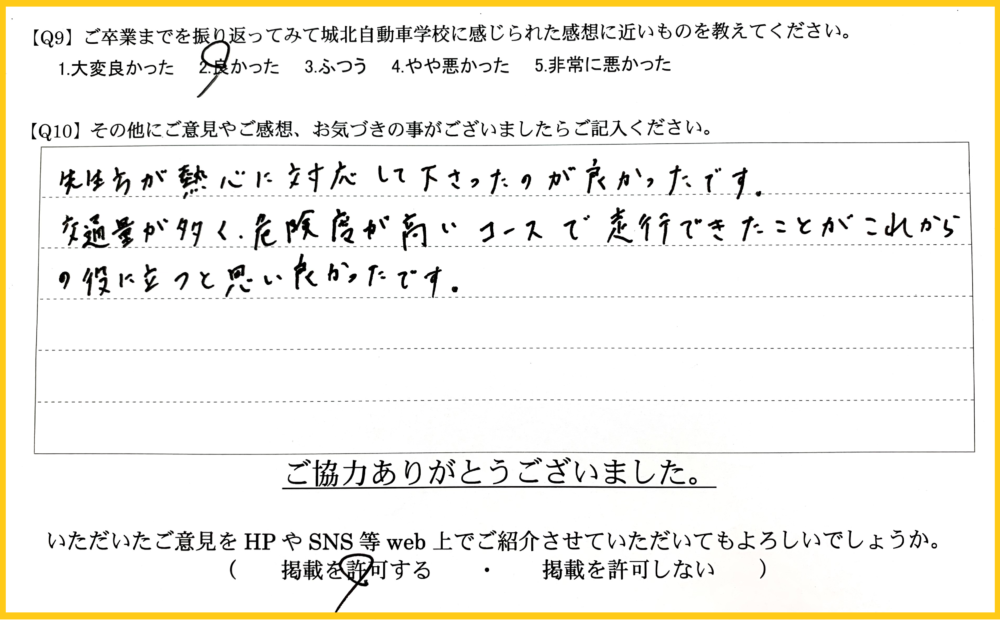 【Q9】ご卒業までを振り返ってみて城北自動車学校に感じられた感想に近いものを教えてください。
1.大変良かった 2.良かった 3.ふつう 4.やや悪かった 5.非常に悪かった
【Q10】その他にご意見やご感想、お気づきの事がございましたらご記入ください。
先生方が熱心に対応して下さったのが良かったです。
交通量が多く、危険度が高いコースで走行できたことがこれから
の役に立つと思い良かったです。
ご協力ありがとうございました。
いただいたご意見をHPやSNS等web上でご紹介させていただいてもよろしいでしょうか。
( 掲載を許可する ・ 掲載を許可しない )